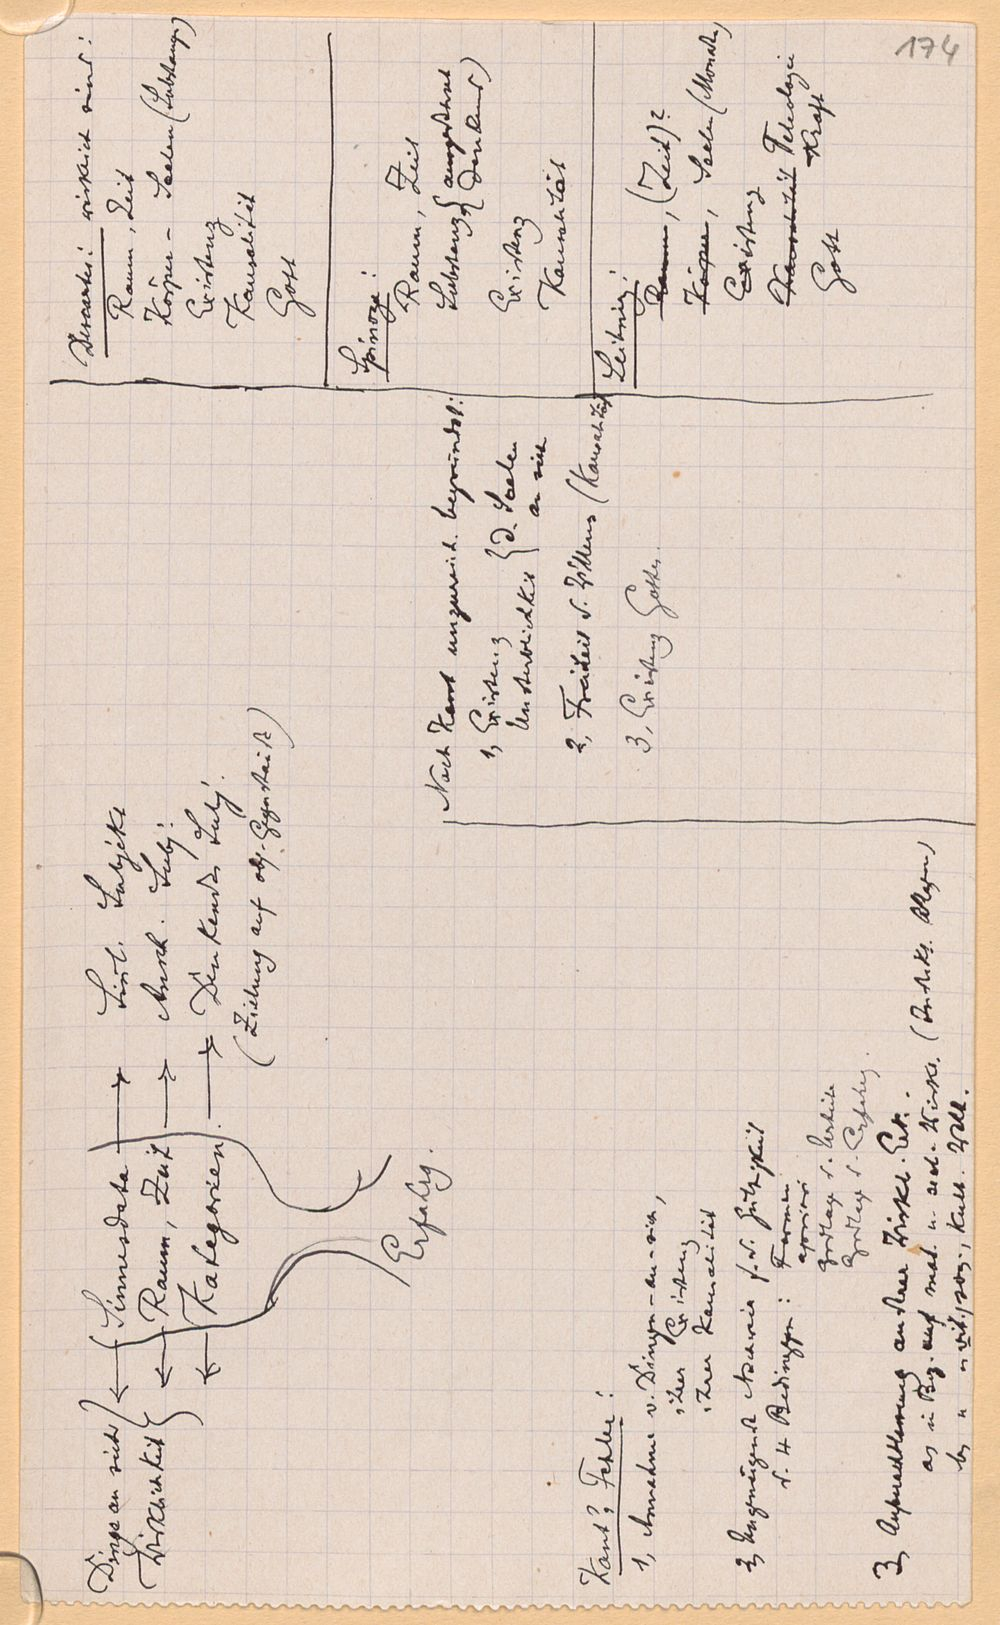 174
Dinge an sich
(Wirklichkeit)
Sinnesdata
Raum, Zeit
Kategorien
Erfahrg.
Subjekt
Ansch. Subj:
Denkendes Subj.
(Zielung auf obj. Gegenständ)
Descartes: wirklich sind:
Raum, Zeit
Körper – Seelen (Substanz)
Existenz
Kausalität
Gott
Spinoza:
Raum, Zeit
Substanz { ausgedehnt
denkend )
Existenz
Kausalität
Leibniz:
Raum, (Zeit)?
Körper, Seelen (Monade)
Existenz
Kausalität Teleologie
Kraft
Gott
Nach Kant unzureich. begründet:
1, Existenz
Unsterblichkeit } d. Seelen
an sich
2, Freiheit d. Willens (Kausalität)
3, Existenz Gottes.
Kants Fehler:
1, Annahme v. Dingen-an-sich,
ihrer Existenz
ihrer Kausalität
2, Ungenügende Nachweis f. d. Gültigkeit
d. 4 Bedinggen: Formen
apriori
Grdlage d.
Grdlage d. Erfahrg.
3, anderer Wirkl.
as in Bez. auf mat. u. seel. Wirkl.
bes " " soz., kult. Welt.